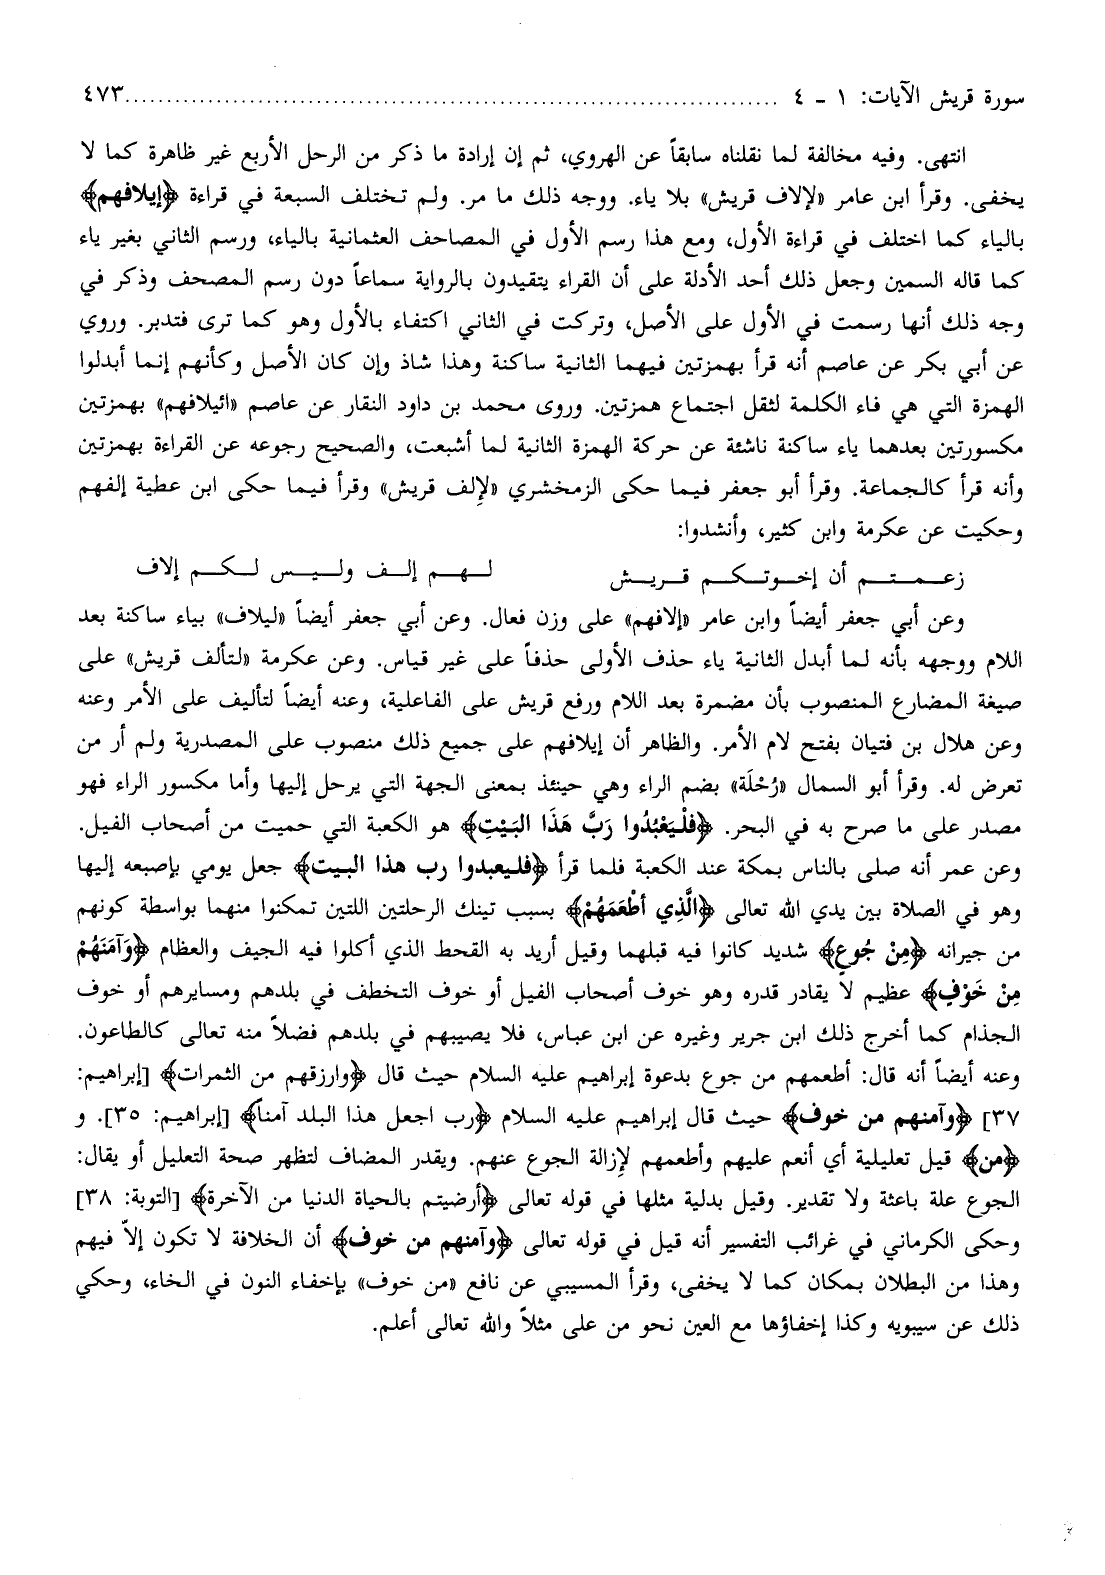 سورة قريش الآيات: ١ - ٤ ........................................................................ ٤٧٣
انتهى. وفيه مخالفة لما نقلناه سابقاً عن الهروي، ثم إن إرادة ما ذكر من الرحل الأربع غير ظاهرة كما لا
يخفى. وقرأ ابن عامر «لإلاف قريش» بلا ياء. ووجه ذلك ما مر. ولم تختلف السبعة في قراءة ﴿إيلافهم﴾
بالياء كما اختلف في قراءة الأول، ومع هذا رسم الأول في المصاحف العثمانية بالياء، ورسم الثاني بغير ياء
كما قاله السمين وجعل ذلك أحد الأدلة على أن القراء يتقيدون بالرواية سماعاً دون رسم المصحف وذكر في
وجه ذلك أنها رسمت في الأول على الأصل، وتركت في الثاني اكتفاء بالأول وهو كما ترى فتدبر. وروي
عن أبي بكر عن عاصم أنه قرأ بهمزتين فيهما الثانية ساكنة وهذا شاذ وإن كان الأصل وكأنهم إنما أبدلوا
الهمزة التي هي فاء الكلمة لثقل اجتماع همزتين. وروى محمد بن داود النقار عن عاصم «ائيلافهم» بهمزتين
مكسورتين بعدهما ياء ساكنة ناشئة عن حركة الهمزة الثانية لما أشبعت، والصحيح رجوعه عن القراءة بهمزتين
وأنه قرأ كالجماعة. وقرأ أبو جعفر فيما حكى الزمخشري «لإلف قريش» وقرأ فيما حكى ابن عطية إلفهم
وحكيت عن عكرمة وابن كثير، وأنشدوا:
زعمتم أن إخوتكم قريش لهم إلف وليس لكم إلاف
وعن أبي جعفر أيضاً وابن عامر «إلافهم» على وزن فعال. وعن أبي جعفر أيضاً «ليلاف» بياء ساكنة بعد
اللام ووجهه بأنه لما أبدل الثانية ياء حذف الأولى حذفاً على غير قياس. وعن عكرمة «لتألف قريش» على
صيغة المضارع المنصوب بأن مضمرة بعد اللام ورفع قريش على الفاعلية، وعنه أيضاً لتأليف على الأمر وعنه
وعن هلال بن فتيان بفتح لام الأمر. والظاهر أن إيلافهم على جميع ذلك منصوب على المصدرية ولم أر من
تعرض له. وقرأ أبو السمال «رُحْلَة» بضم الراء وهي حينئذ بمعنى الجهة التي يرحل إليها وأما مكسور الراء فهو
مصدر على ما صرح به في البحر. ﴿فَلْيَعْبُدُوا رَبَّ هَذَا البَيْتِ﴾ هو الكعبة التي حميت من أصحاب الفيل.
وعن عمر أنه صلى بالناس بمكة عند الكعبة فلما قرأ ﴿فليعبدوا رب هذا البيت﴾ جعل يومي بإصبعه إليها
وهو في الصلاة بين يدي الله تعالى ﴿الَّذِي أَطْعَمَهُمْ﴾ بسبب تينك الرحلتين اللتين تمكنوا منهما بواسطة كونهم
من جيرانه ﴿مِنْ جُوعٍ﴾ شديد كانوا فيه قبلهما وقيل أريد به القحط الذي أكلوا فيه الجيف والعظام ﴿وَآمَنَهُمْ
مِنْ خَوْفٍ﴾ عظيم لا يقادر قدره وهو خوف أصحاب الفيل أو خوف التخطف في بلدهم ومسايرهم أو خوف
الجذام كما أخرج ذلك ابن جرير وغيره عن ابن عباس، فلا يصيبهم في بلدهم فضلاً منه تعالى كالطاعون.
وعنه أيضاً أنه قال: أطعمهم من جوع بدعوة إبراهيم عليه السلام حيث قال ﴿وارزقهم من الثمرات﴾ [إبراهيم:
٣٧] ﴿وآمنهم من خوف﴾ حيث قال إبراهيم عليه السلام ﴿رب اجعل هذا البلد آمناً﴾ [إبراهيم: ٣٥]. و
﴿من﴾ قيل تعليلية أي أنعم عليهم وأطعمهم لإزالة الجوع عنهم. ويقدر المضاف لتظهر صحة التعليل أو يقال:
الجوع علة باعثة ولا تقدير. وقيل بدلية مثلها في قوله تعالى ﴿أرضيتم بالحياة الدنيا من الآخرة﴾ [التوبة: ٣٨]
وحكى الكرماني في غرائب التفسير أنه قيل في قوله تعالى ﴿وآمنهم من خوف﴾ أن الخلافة لا تكون إلاّ فيهم
وهذا من البطلان بمكان كما لا يخفى، وقرأ المسيبي عن نافع «من خوف» بإخفاء النون في الخاء، وحكي
ذلك عن سيبويه وكذا إخفاؤها مع العين نحو من على مثلاً والله تعالى أعلم.